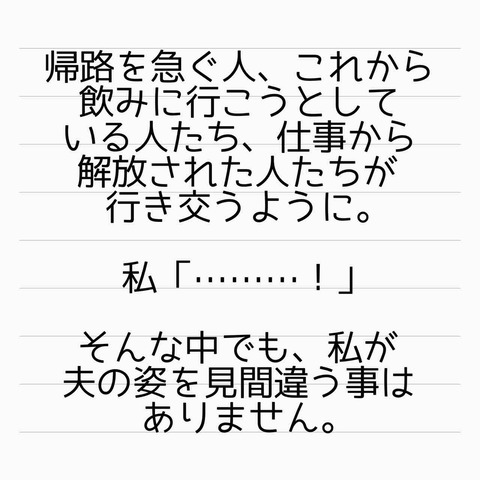 帰路を急ぐ人、これから
飲みに行こうとして
いる人たち、仕事から
解放された人たちが
行き交うように。
私「………！」
そんな中でも、私が
夫の姿を見間違う事は
ありません。